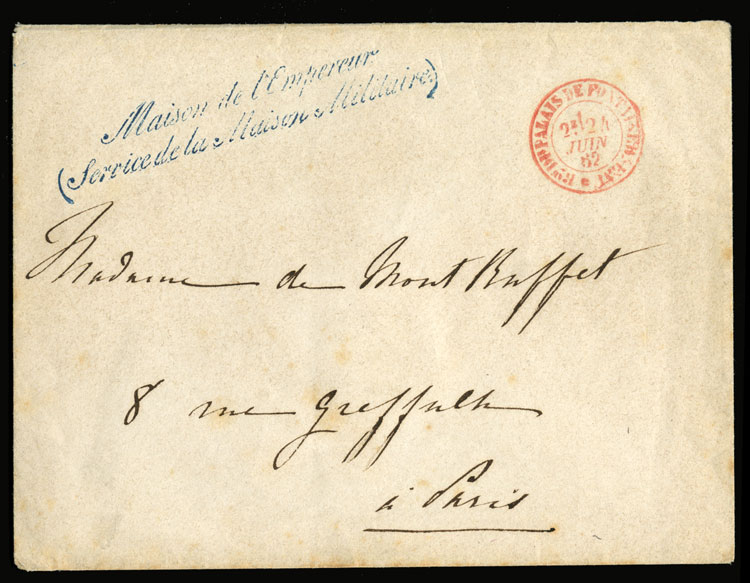 Maison de l'Empereur
(Service de la Maison Militaire)
PALAIS DE FONT
2E 24
JUIN
62
Madame de Mont Ruffet
8 rue Greffulh
à Paris